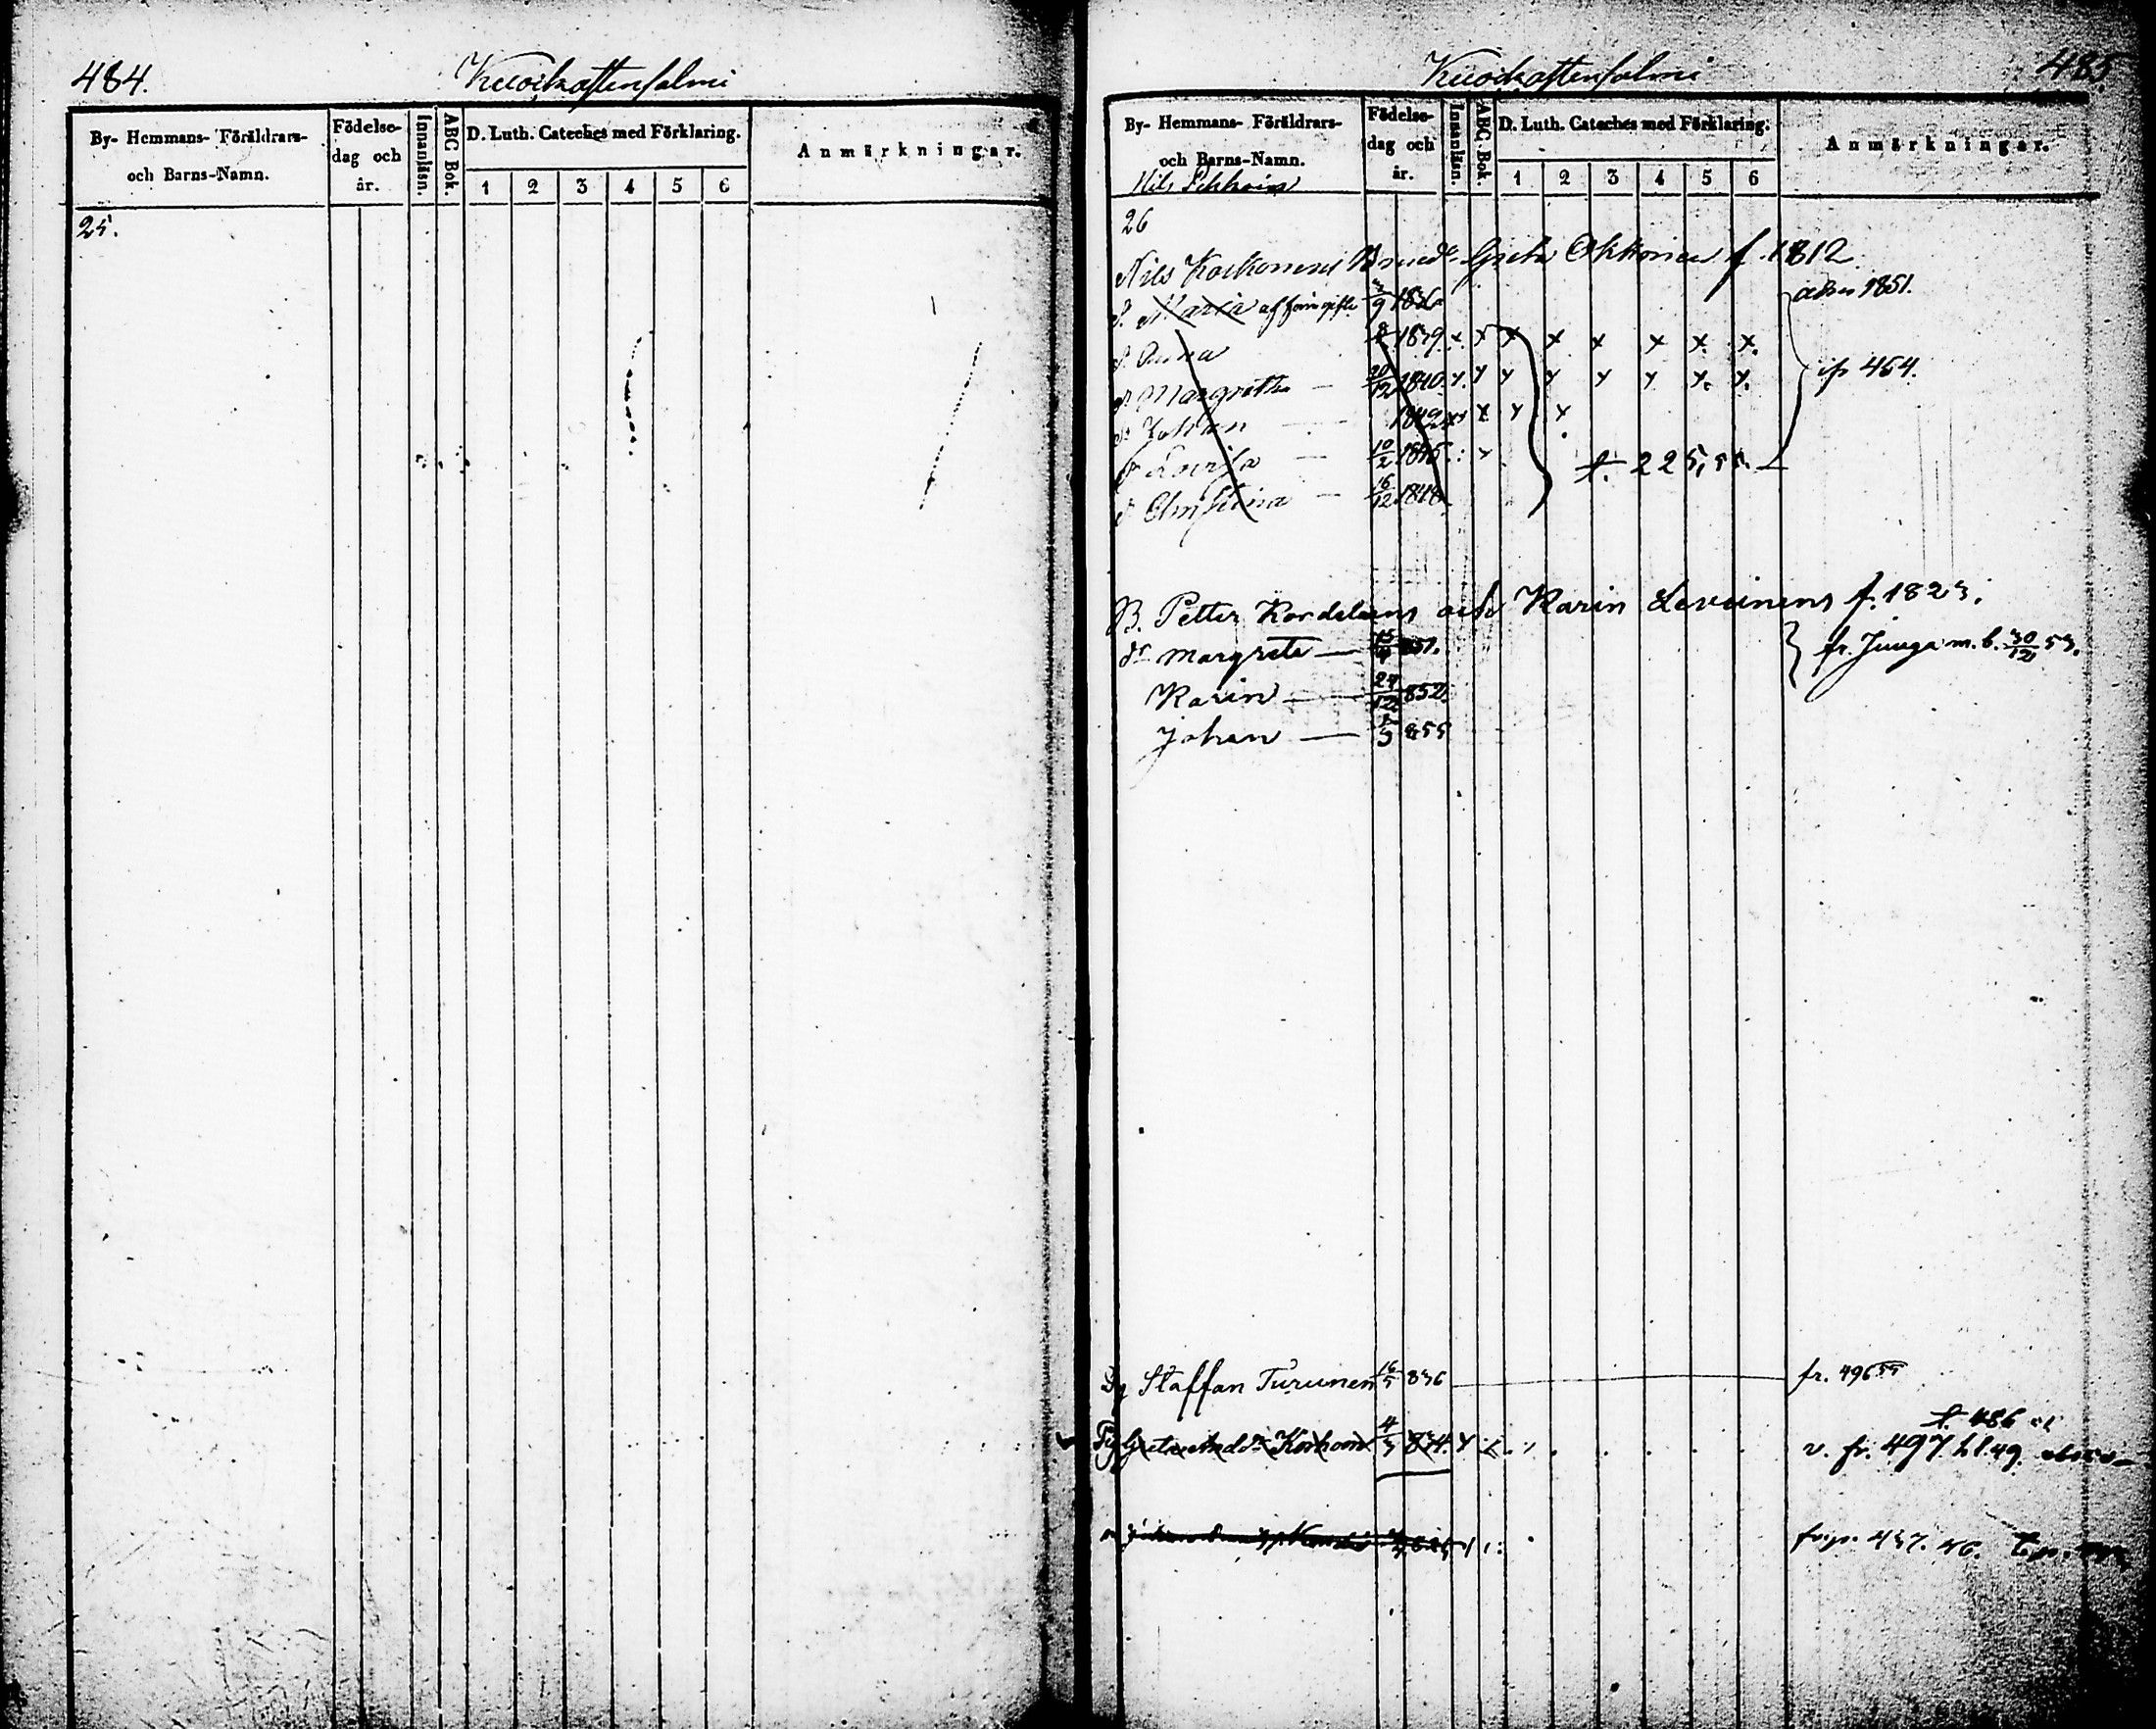 484.
Kuoikattensalmi
By- Hemmans- Föräldrars- och Barns-Namn.
Födelse-dag och år.
Innanläsn.
ABC Bok.
D. Luth. Cateches med Förklaring.
1 2 3 4 5 6
Anmärkningar.
25.
Kuoikattensalmi
485
By- Hemmans- Föräldrars- och Barns-Namn.
Nils
Födelse-dag och år.
Innanläsn.
ABC. Bok.
D. Luth. Cateches med Förklaring.
1 2 3 4 5 6
Anmärkningar.
26
Nils Korhonens Greta Okkonen f. 1812
d. Maria 9 1836
1851.
d. Anna 1839. x. x x x x x x. x.
d. Margretha — 20/12 1840. x. x x x x x x. x. ip 454.
Johan — x x x
d. Lovisa — 10/2 1845. t. 225, 55.
d. Christina — 16/12 1848
B. Petter Kordelains och Karin Leveinens f. 1823.
dr Margreta — 15/4 851. fr. Juuga m. b. 30/12 53.
Karin — 24/12 852.
Johan — 855
Staffan Turunen 16/5 836 fr. 496 55
t. 486
Greta Korhon 4/3 834. v. fr. 497. 49.
437. 46.